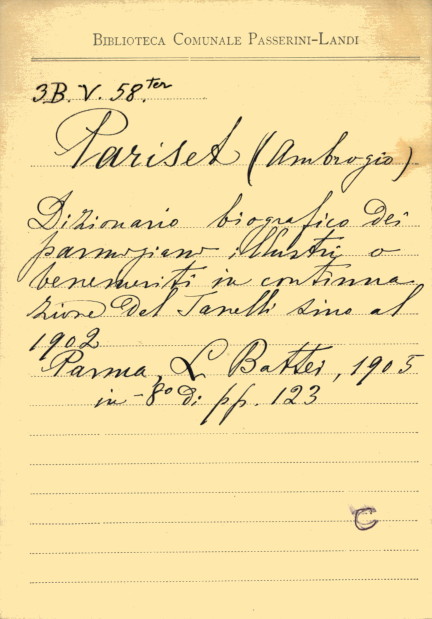 BIBLIOTECA COMUNALE PASSERINI-LANDI
3B. V. 58.ter
Pariset (Ambrogio)
Dizionario biografico dei
parmigiani illustri o
benemeriti in continua
zione del Janelli sino al
1902
Parma, L. Battei, 1905
in-8º di pp. 123
C